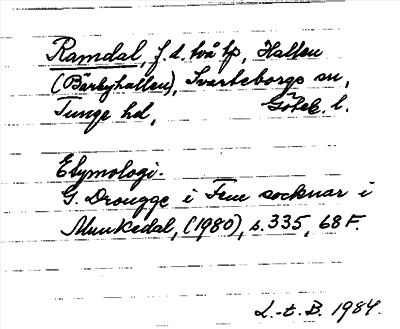 Ramdal, f.d. två tp, Hallen
(Bärbyhallen), Svarteborgs sn,
Tunge hd, Göteb. l.
Etymologi.
G. Drougge i Fem socknar i
Munkedal, (1980), s. 335, 68 F.
L.-t. B. 1984.